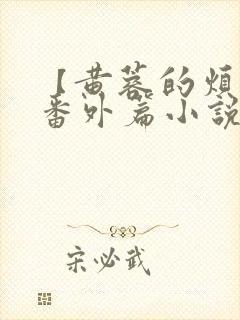 【黄蓉的烦
番外篇小説
宋必武